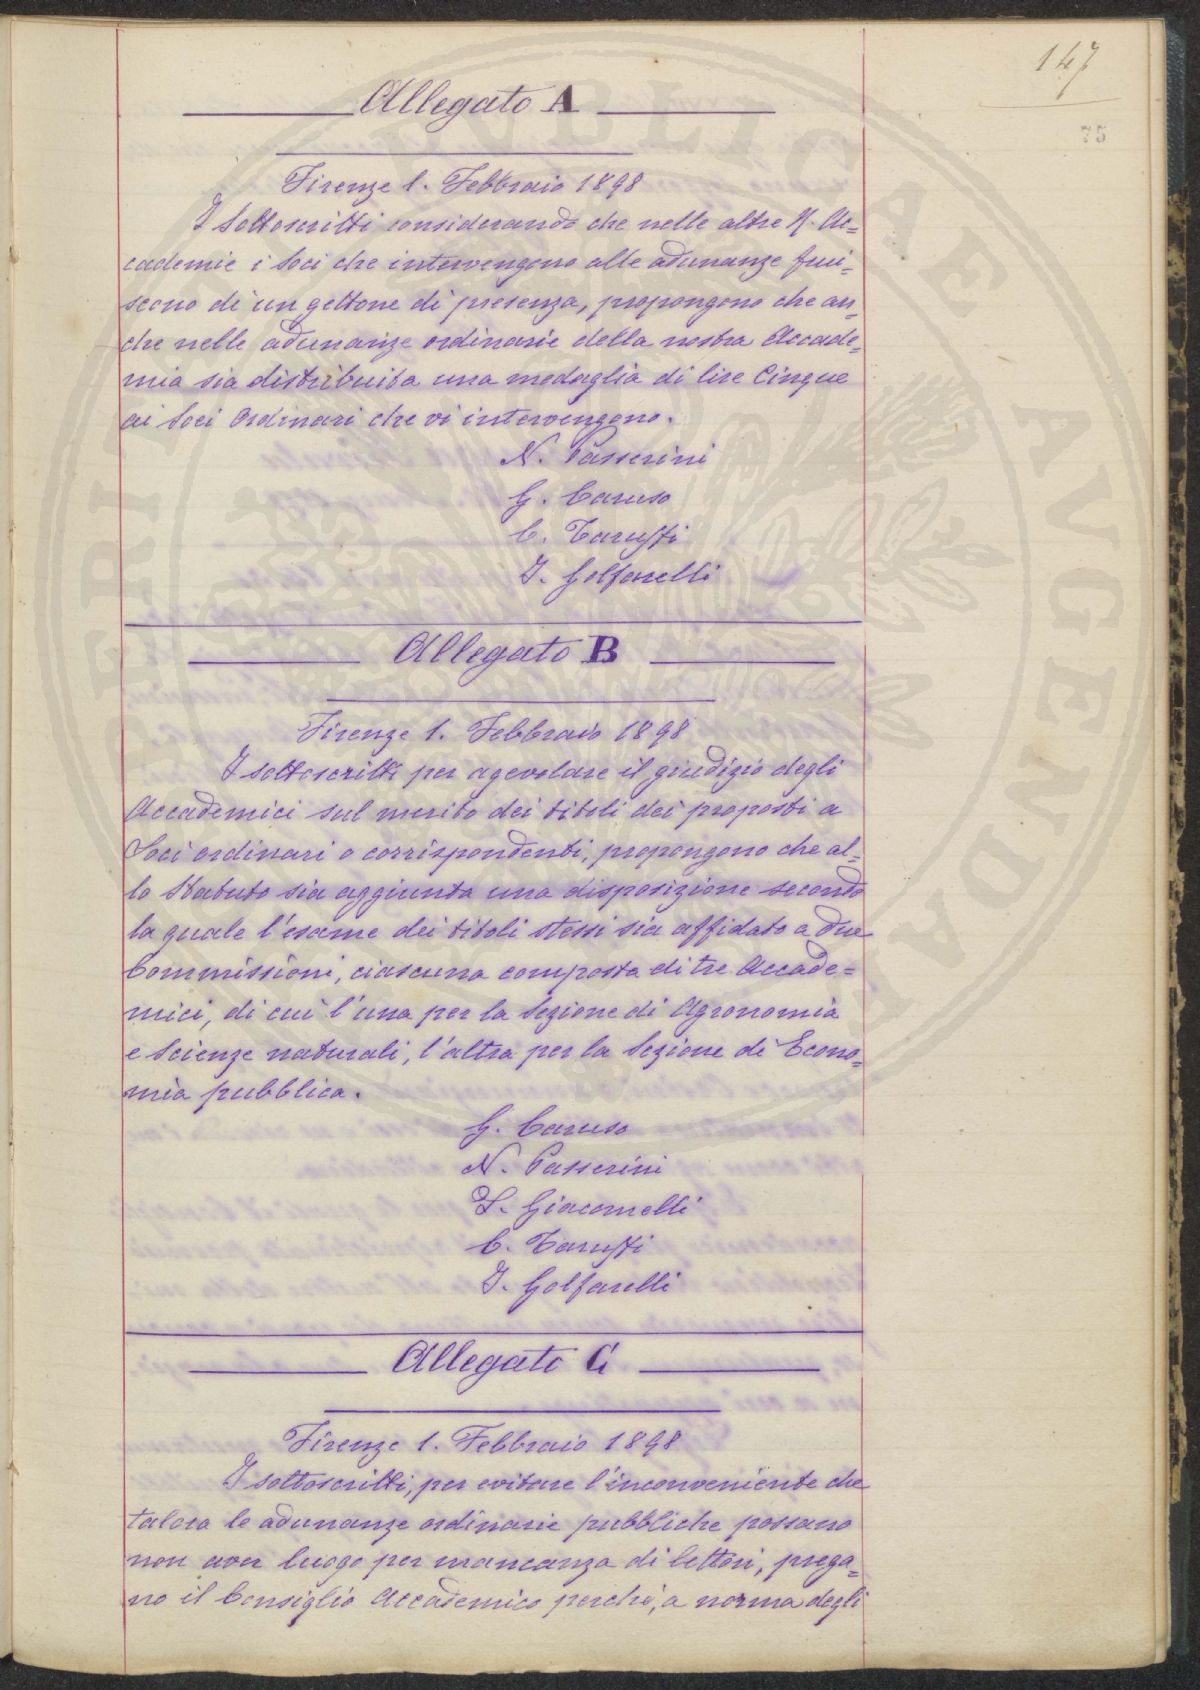 147
75
Allegato A
Firenze 1. Febbraio 1898
I Sottoscritti considerando che nelle altre R. Ac=
cademie i Soci che intervengono alle adunanze frui=
scono di un gettone di presenza, propongono che an=
che nelle adunanze ordinarie della nostra Accade=
mia sia distribuita una medaglia di lire Cinque
ai Soci Ordinari che vi intervengono.
N. Passerini
G. Caruso
C. Taruffi
I. Golfarelli
Allegato B
Firenze 1. Febbraio 1898
I sottoscritti per agevolare il giudizio degli
Accademici sul merito dei titoli dei proposti a
Soci ordinari o corrispondenti, propongono che al=
lo Statuto sia aggiunta una disposizione secondo
la quale l'esame dei titoli stessi sia affidato a due
Commissioni, ciascuna composta di tre Accade=
mici, di cui l'una per la Sezione di Agronomia
e Scienze naturali, l'altra per la Sezione di Econo=
mia pubblica.
G. Caruso
N. Passerini
L. Giacomelli
C. Taruffi
I. Golfarelli
Allegato C
Firenze 1. Febbraio 1898
I sottoscritti, per evitare l'inconveniente che
talora le adunanze ordinarie pubbliche possano
non aver luogo per mancanza di lettori, prega=
no il Consiglio Accademico perché, a norma degli